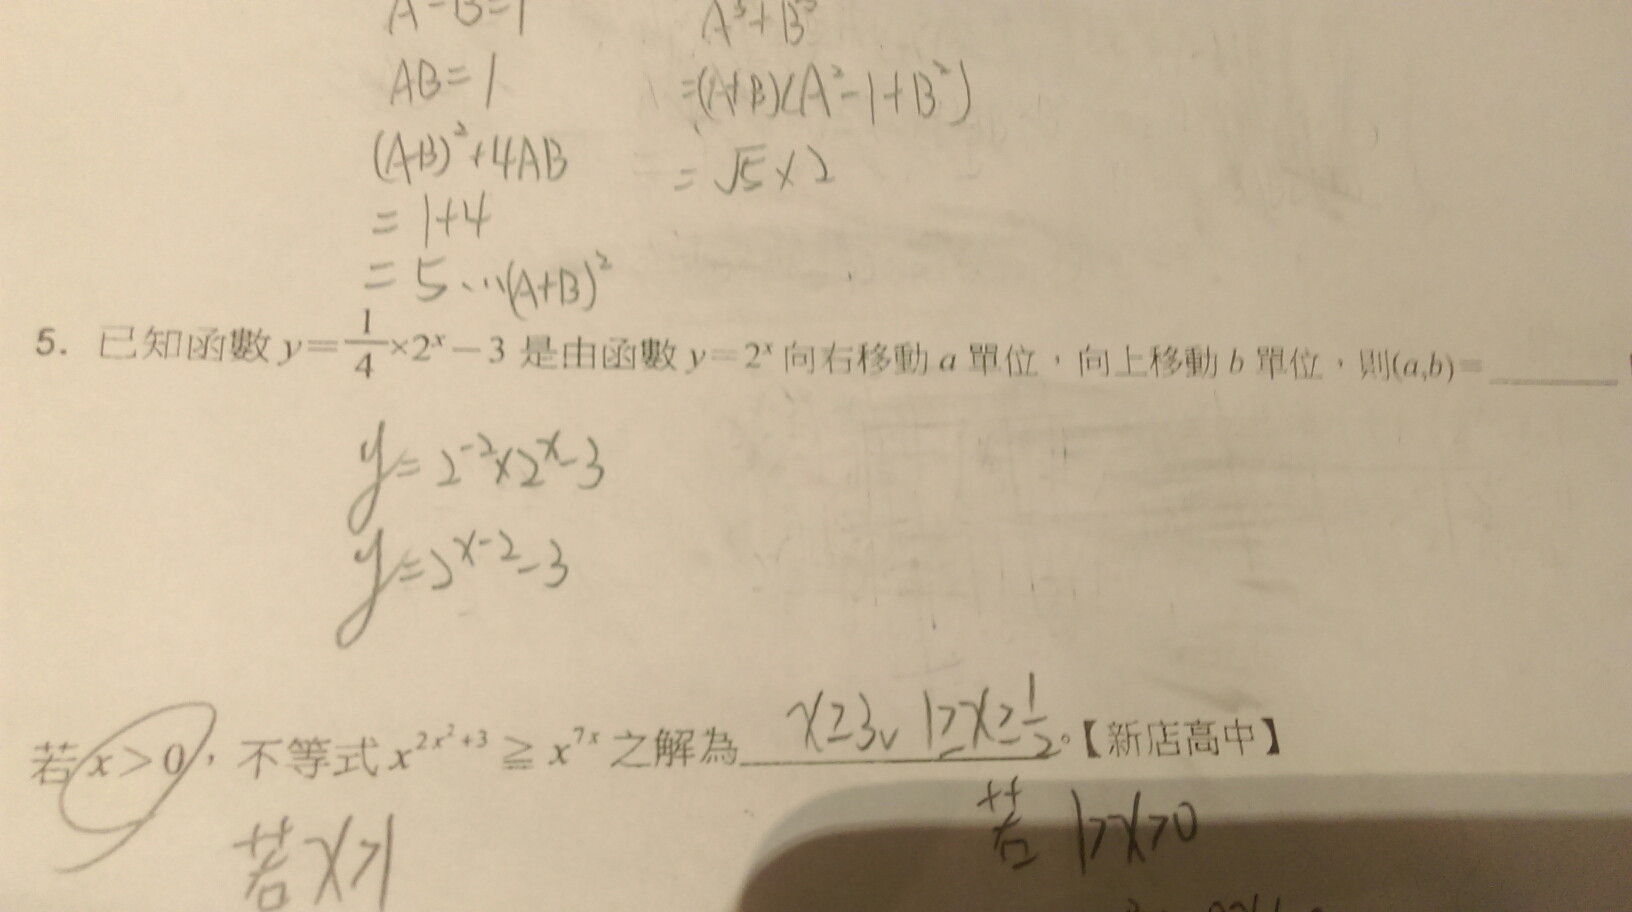 A-B=1
AB=1
(A-B)²+4AB
=1+4
=5...(A+B)²
A³+B³
=(A+B)(A²-1+B²)
=√5×2
5. 已知函數 y=1/4×2ˣ-3 是由函數 y=2ˣ 向右移動 a 單位，向上移動 b 單位，則(a,b)=______
y=2⁻²×2ˣ-3
y=2ˣ⁻²-3
若 x>0，不等式 x^{2x²+3} ≧ x^{7x} 之解為 x≥3, 1≥x≥1/2。【新店高中】
若 x>1
若 1>x>0